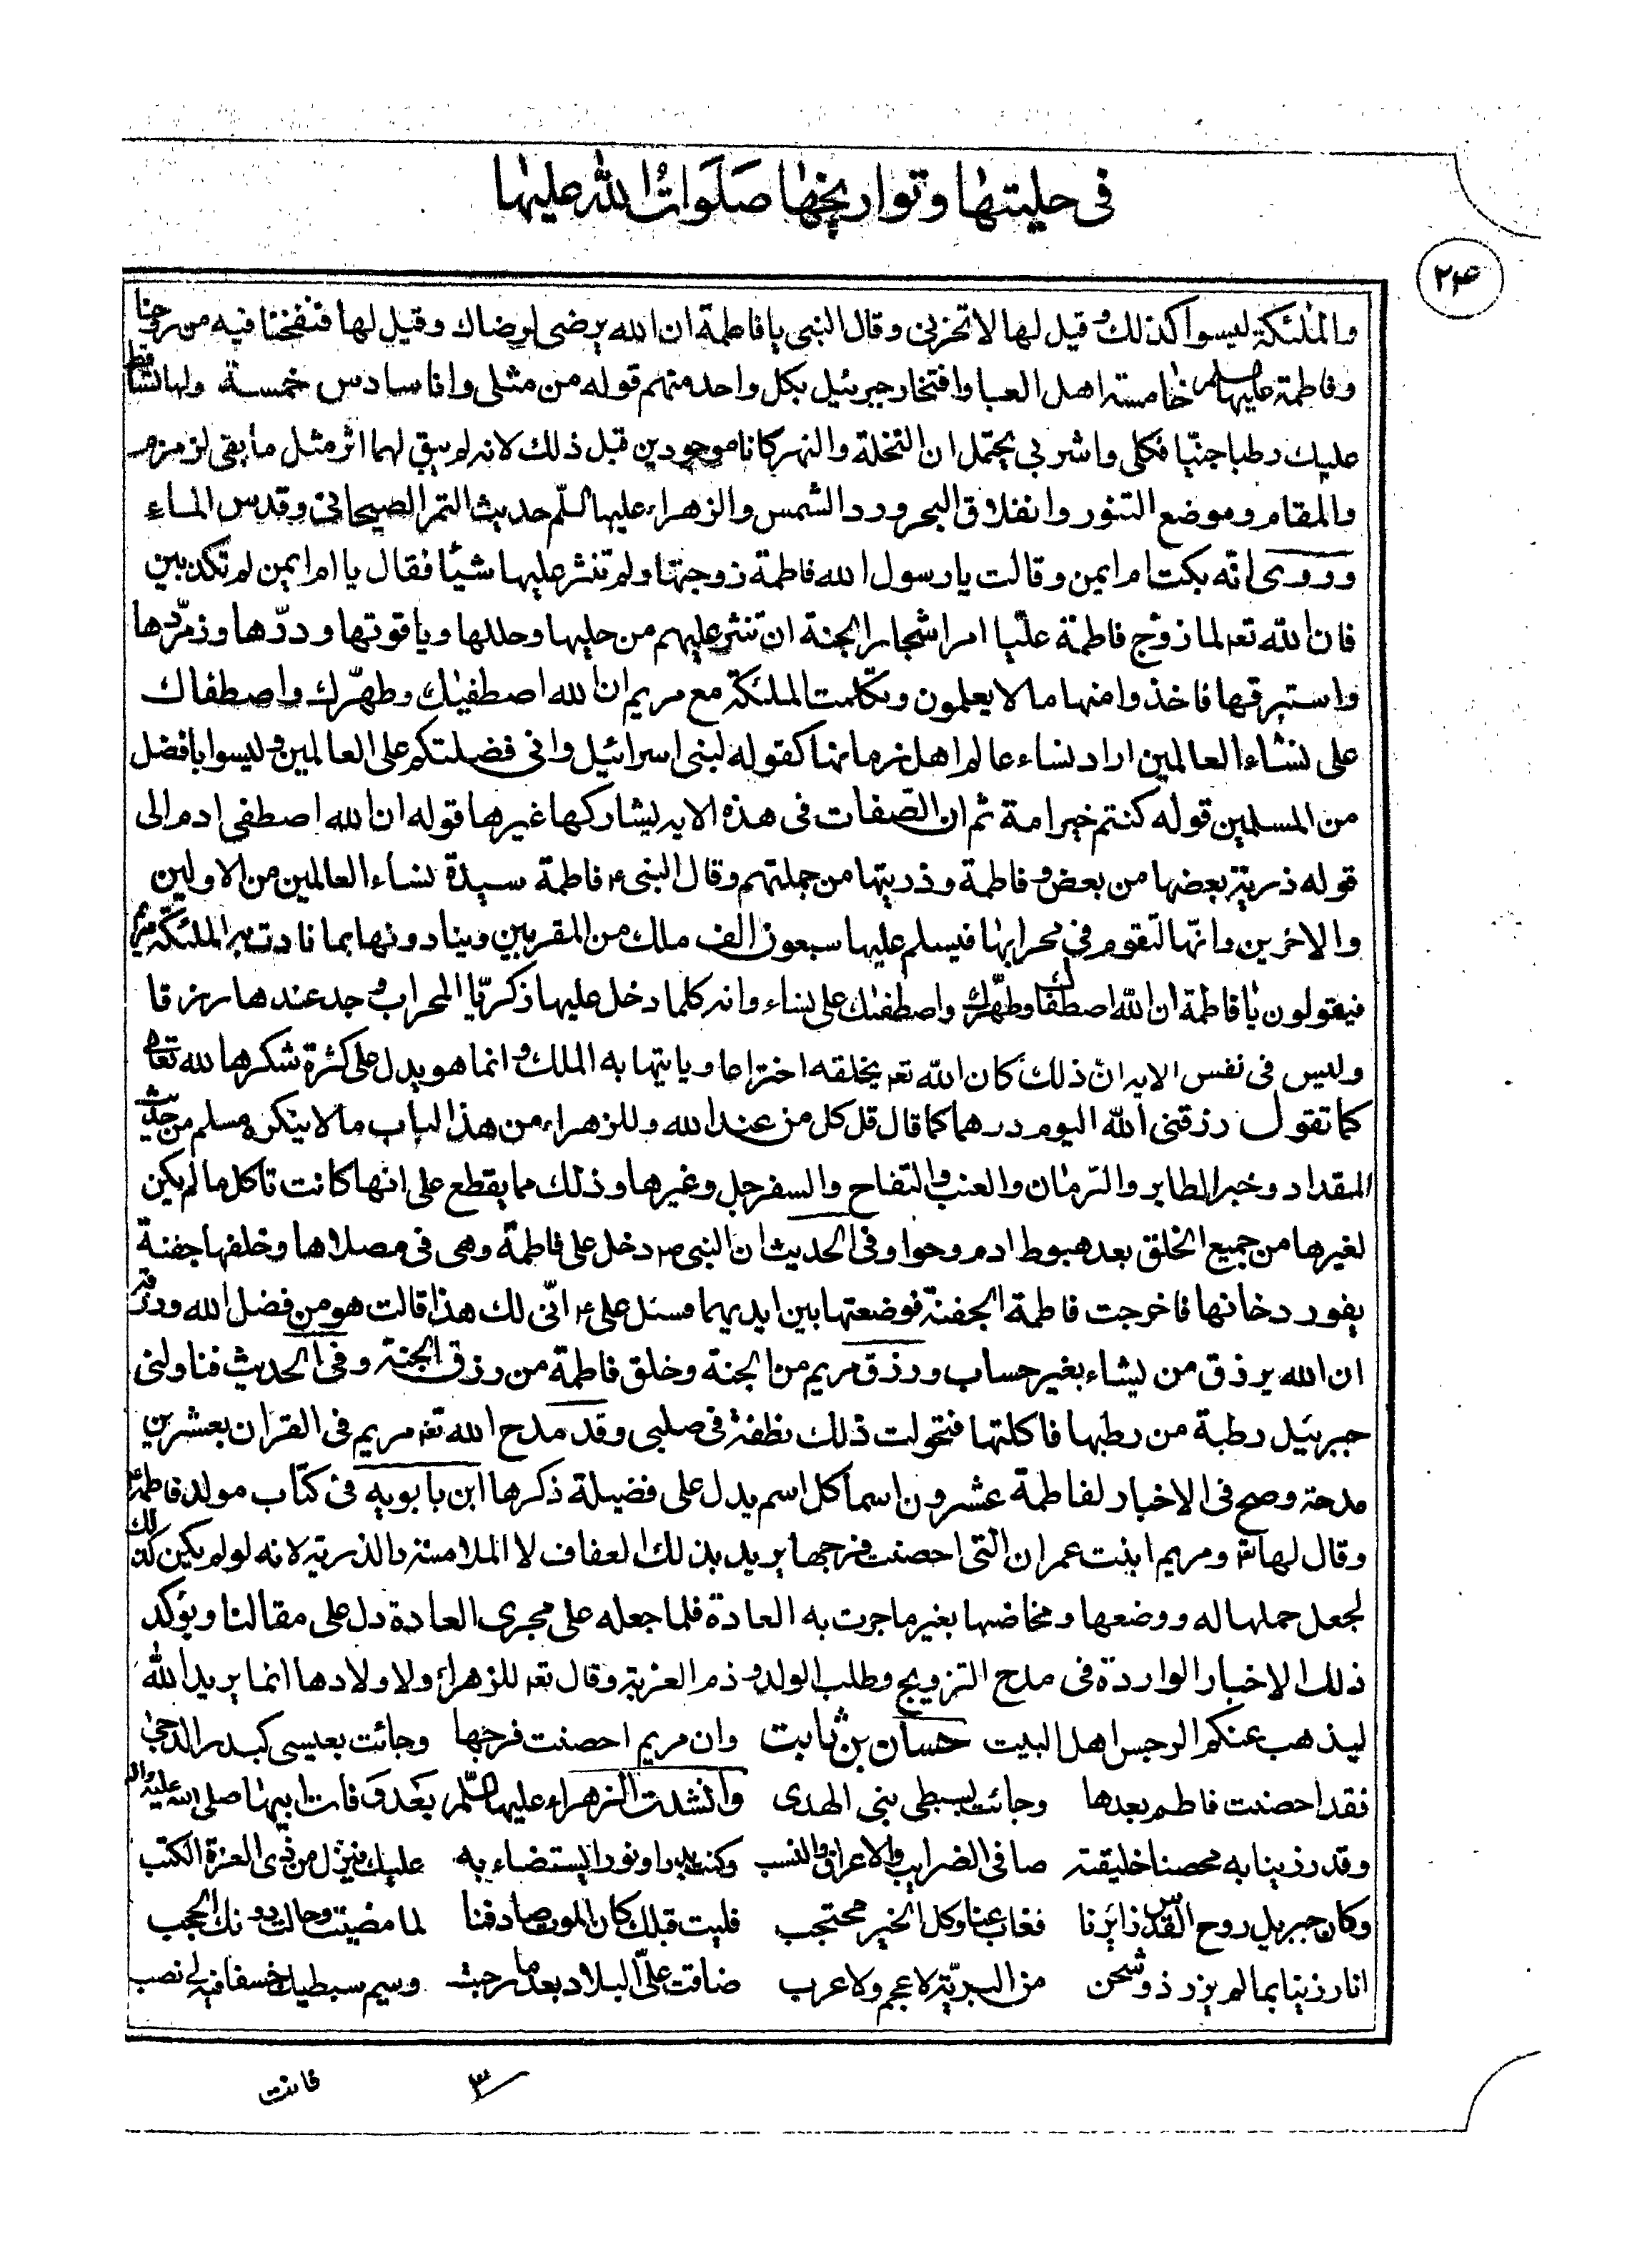 فى حليتها وتواريخها صلوات الله عليها
٢٤
والملئكة ليسوا كذلك وقيل لها لا تحزنى وقال النبى يا فاطمة ان الله يرضى لرضاك وقيل لها فنفخنا فيه من روحنا
وفاطمة عليها السلم خامسة اهل العبا وافتخار جبرئيل بكل واحد منهم قوله من مثلى وانا سادس خمسة ولها تساقط
عليك رطبا جنيّا فكلى واشربى يحتمل ان النخلة والنهر كانا موجودين قبل ذلك لانه لم يبق لهما اثر مثل ما بقى لزمزم
والمقام وموضع التنور وانفلاق البحر ورد الشمس والزهراء عليها السلّم حديث التمر الصيحانى وقدس الماء
وروى انه بكت ام ايمن وقالت يا رسول الله فاطمة زوجتها ولم تنثر عليها شيئا فقال يا ام ايمن لم تكذبين
فان الله تعه لما زوّج فاطمة عليّا امر اشجار الجنة ان تنثر عليهم من حليها وحللها وياقوتها ودرّها وزمرّدها
واستبرقها فاخذوا منها ما لا يعلمون وتكلمت الملئكة مع مريم ان الله اصطفيك وطهّرك واصطفاك
على نساء العالمين اراد نساء عالم اهل زمانها كقوله لبنى اسرائيل وانى فضلتكم على العالمين وليسوا بافضل
من المسلمين قوله كنتم خير امة ثم ان الصّفات فى هذه الايه يشاركها غيرها قوله ان الله اصطفى ادم الى
قوله ذرية بعضها من بعض وفاطمة وذريتها من جملتهم وقال النبى ص فاطمة سيدة نساء العالمين من الاولين
والاخرين وانّها لتقوم فى محرابها فيسلم عليها سبعون الف ملك من المقربين وينادونها بما نادت به الملئكة مريم
فيقولون يا فاطمة ان الله اصطفاك وطهّرك واصطفىك على نساء وانه كلما دخل عليها زكريّا المحراب وجد عندها رزقا
وليس فى نفس الايه انّ ذلك كان الله تعه يخلقه اختراعا ويايتها به الملك وانما هو يدل على كثرة شكرها لله تعالى
كما تقول رزقنى الله اليوم درهما كما قال قل كل من عند الله وللزهراء من هذا الباب ما لا ينكره مسلم من حديث
المقداد وخبر الطاير والرّمان والعنب والتفاح والسفرجل وغيرها وذلك مما يقطع على انها كانت تاكل ما لم يكن
لغيرها من جميع الخلق بعد هبوط ادم وحوا وفى الحديث ان النبى ص دخل على فاطمة وهى فى مصلاها وخلفها جفنة
يفور دخانها فاخرجت فاطمة الجفنة فوضعتها بين ايديهما فسئل على ع انّى لك هذا قالت هو من فضل الله ورزقه
ان الله يرزق من يشاء بغير حساب ورزق مريم من الجنة وخلق فاطمة من رزق الجنة وفى الحديث فناولنى
جبرئيل رطبة من رطبها فاكلتها فتحولت ذلك نطفة فى صلبى وقد مدح الله تعه مريم فى القران بعشرين
مدحة وصح فى الاخبار لفاطمة عشرون اسما كل اسم يدل على فضيلة ذكرها ابن بابويه فى كتاب مولد فاطمة
وقال لها ومريم ابنت عمران التى احصنت فرجها يريد بذلك العفاف لا الملامسة والذرية لانه لو لم يكن كذلك
لجعل حملها له ووضعها ومخاضها بغير ما جرت به العادة فلما جعله على مجرى العادة دل على مقالنا ويؤكد
ذلك الاخبار الواردة فى مدح التزويج وطلب الولد وذم العزبة وقال تعه للزهراء ولاولادها انما يريد الله
ليذهب عنكم الرجس اهل البيت حسان بن ثابت وان مريم احصنت فرجها وجائت بعيسى كبدر الدجى
فقد احصنت فاطم بعدها وجائت بسبطى نبى الهدى وانشدت الزهراء عليها السّلم بعد وفات ابيها صلى الله عليه واله
وقد رزينا به محصنا خليقته صافى الضرايب والاعراق والنسب وكنت بدرا ونورا يستضاء به عليك ينزل من ذى العزة الكتب
وكان جبريل روح القدس زايرنا فغاب عنا وكل الخير محتجب فليت قبلك كان الموت صادفنا لما مضيت وحالت دونك الحجب
انا رزينا بما لم يرز ذو شجن من البريّة لا عجم ولا عرب ضاقت علىّ البلاد بعد ما رحبت وسيم سبطيك خسفا فيه لى نصب
٣
فانت